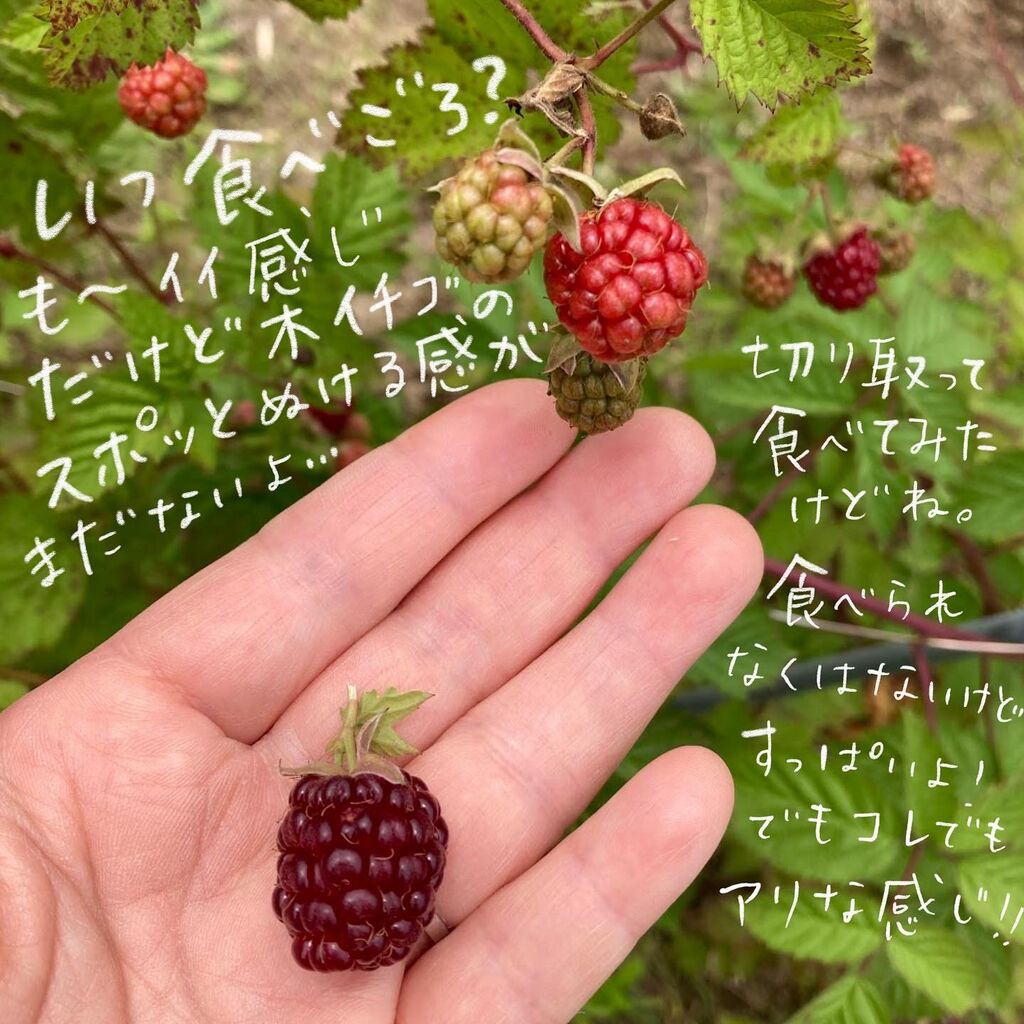 いつ食べごろ？
も〜イイ感じ
だけど木イチゴの
スポッとぬける感が
まだないよ…
切り取って
食べてみた
けどね。
食べられ
なくはないけど
すっぱいよ！
でもコレでも
アリな感じ!!